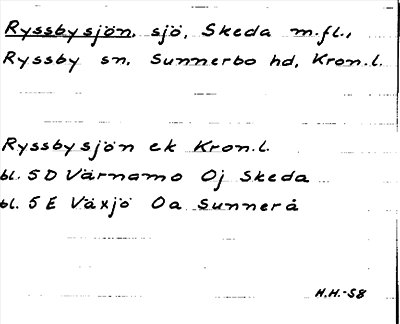 Ryssbysjön, sjö, Skeda m.fl.,
Ryssby sn, Sunnerbo hd, Kron.l.
Ryssbysjön ek Kron.l.
bl. 5 D Värnamo Oj Skeda
bl. 5 E Växjö Oa Sunnerå
H.H.-58